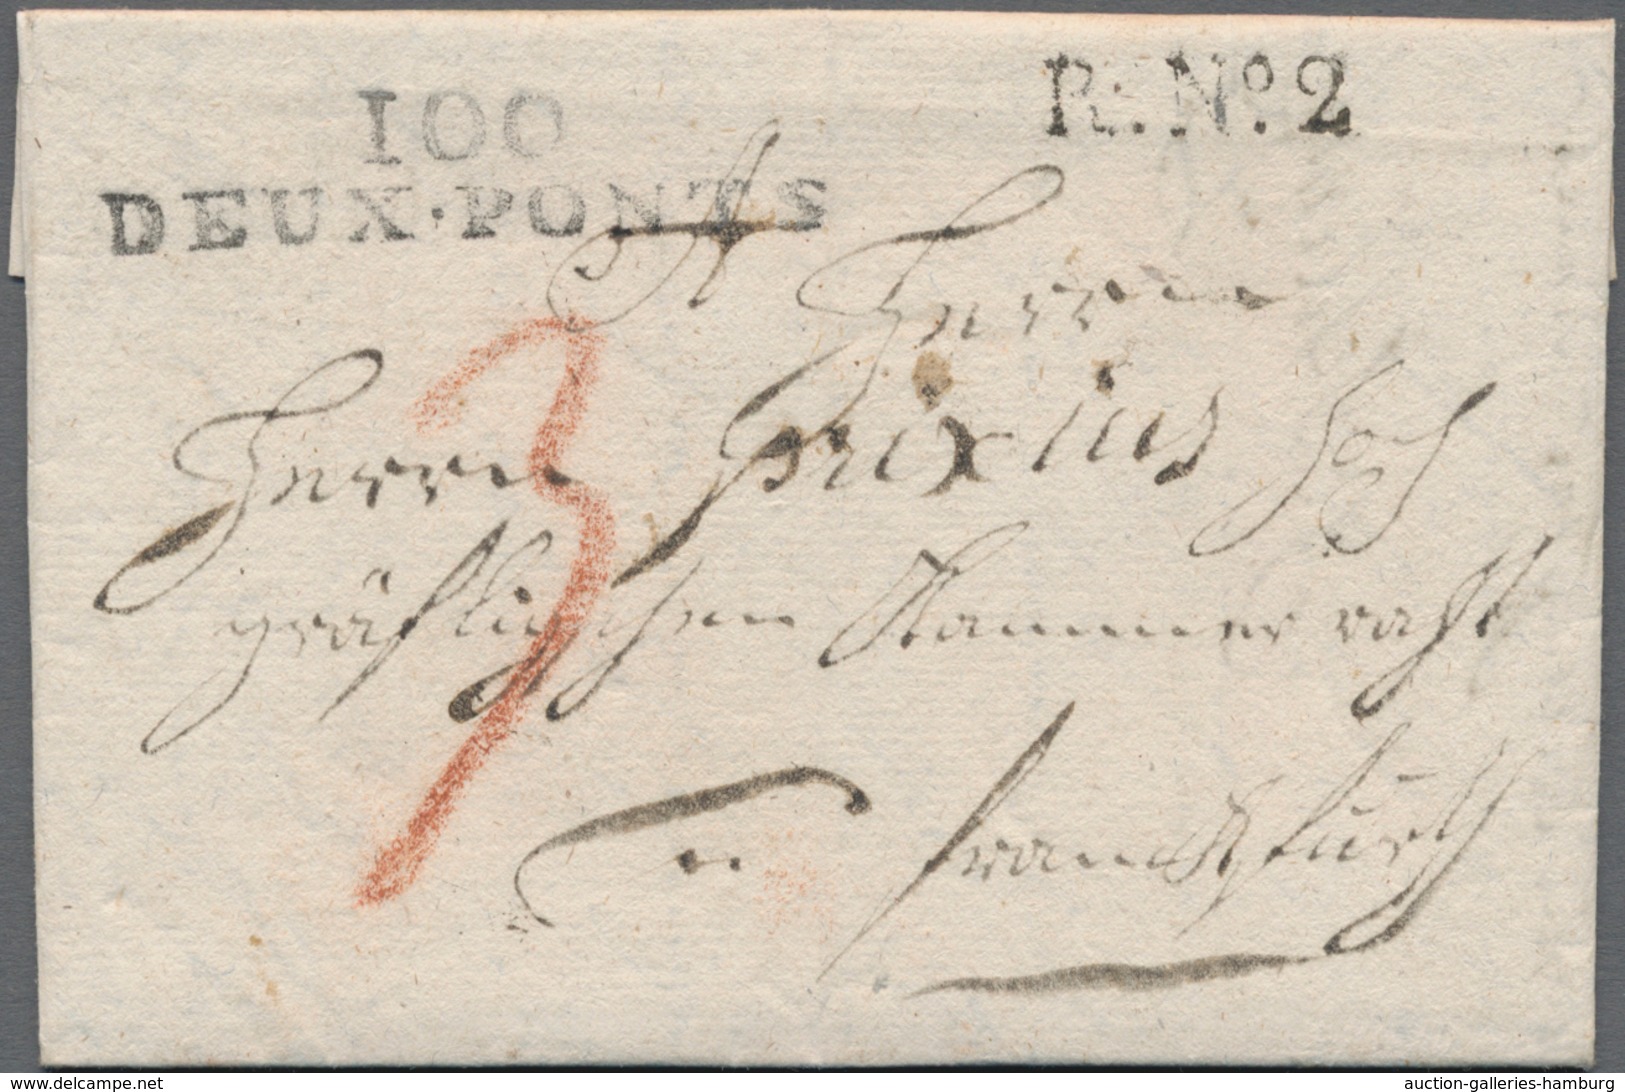 100
DEUX·PONTS
R. No. 2
A
Herrn
Herrn Grixius hoch
gräflichen Kammerrath
in
Franckfurth
3
www.delcampe.net
auction-galleries-hamburg